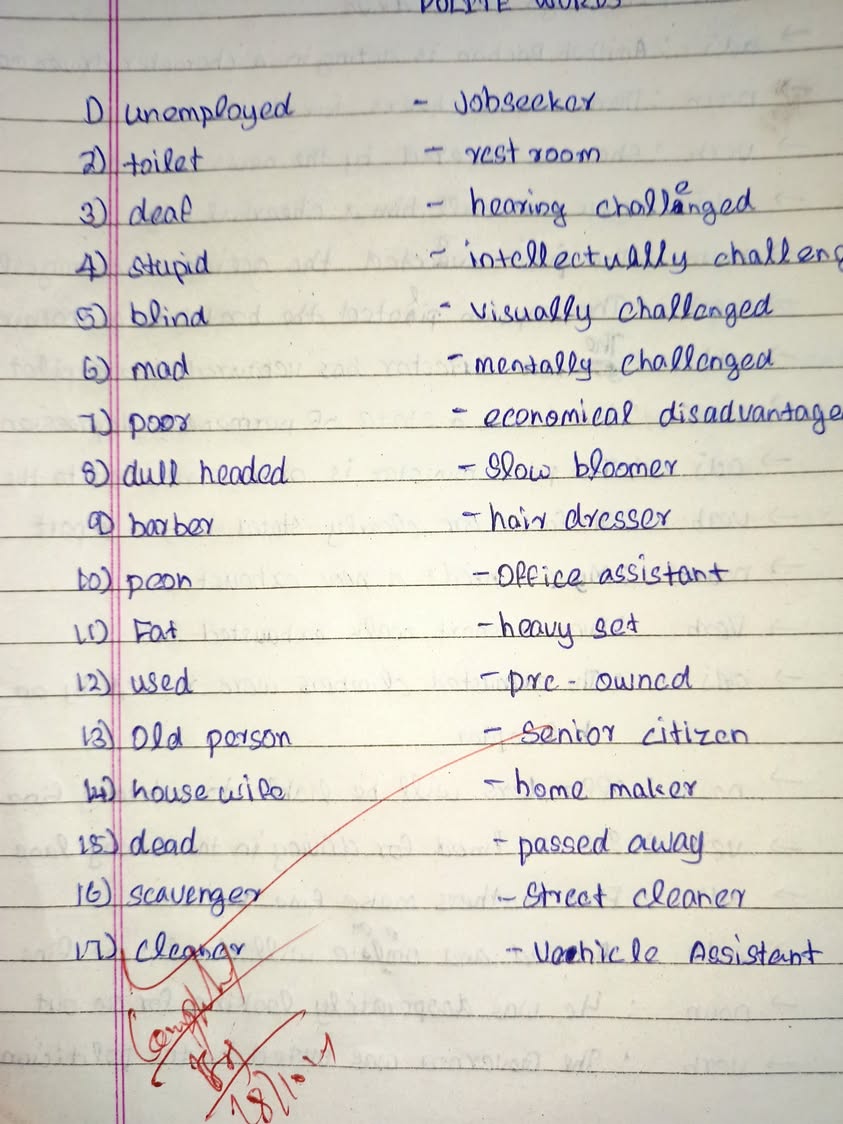 POLITE WORDS
1) unemployed - Jobseeker
2) toilet - rest room
3) deaf - hearing challenged
4) stupid - intellectually challeng
5) blind - visually challenged
6) mad - mentally challenged
7) poor - economical disadvantage
8) dull headed - slow bloomer
9) barber - hair dresser
10) peon - Office assistant
11) Fat - heavy set
12) used - pre-owned
13) Old person - Senior citizen
14) house wife - home maker
15) dead - passed away
16) scavenger - Street cleaner
17) cleaner - Vehicle Assistant